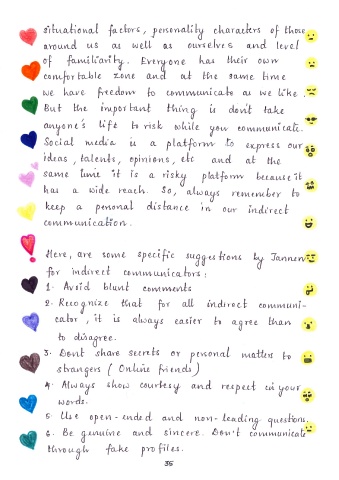 situational factors, personality characters of those
around us as well as ourselves and level
of familiarity. Everyone has their own
comfortable zone and at the same time
we have freedom to communicate as we like.
But the important thing is don't take
anyone's life to risk while you communicate.
Social media is a platform to express our
ideas, talents, opinions, etc and at the
same time it is a risky platform because it
has a wide reach. So, always remember to
keep a personal distance in our indirect
communication.
Here, are some specific suggestions by Tannen
for indirect communicators:
1. Avoid blunt comments
2. Recognize that for all indirect communi-
cator, it is always easier to agree than
to disagree.
3. Dont share secrets or personal matters to
strangers (Online friends)
4. Always show courtesy and respect in your
words.
5. Use open-ended and non-leading questions.
6. Be genuine and sincere. Don't communicate
through fake profiles.
35